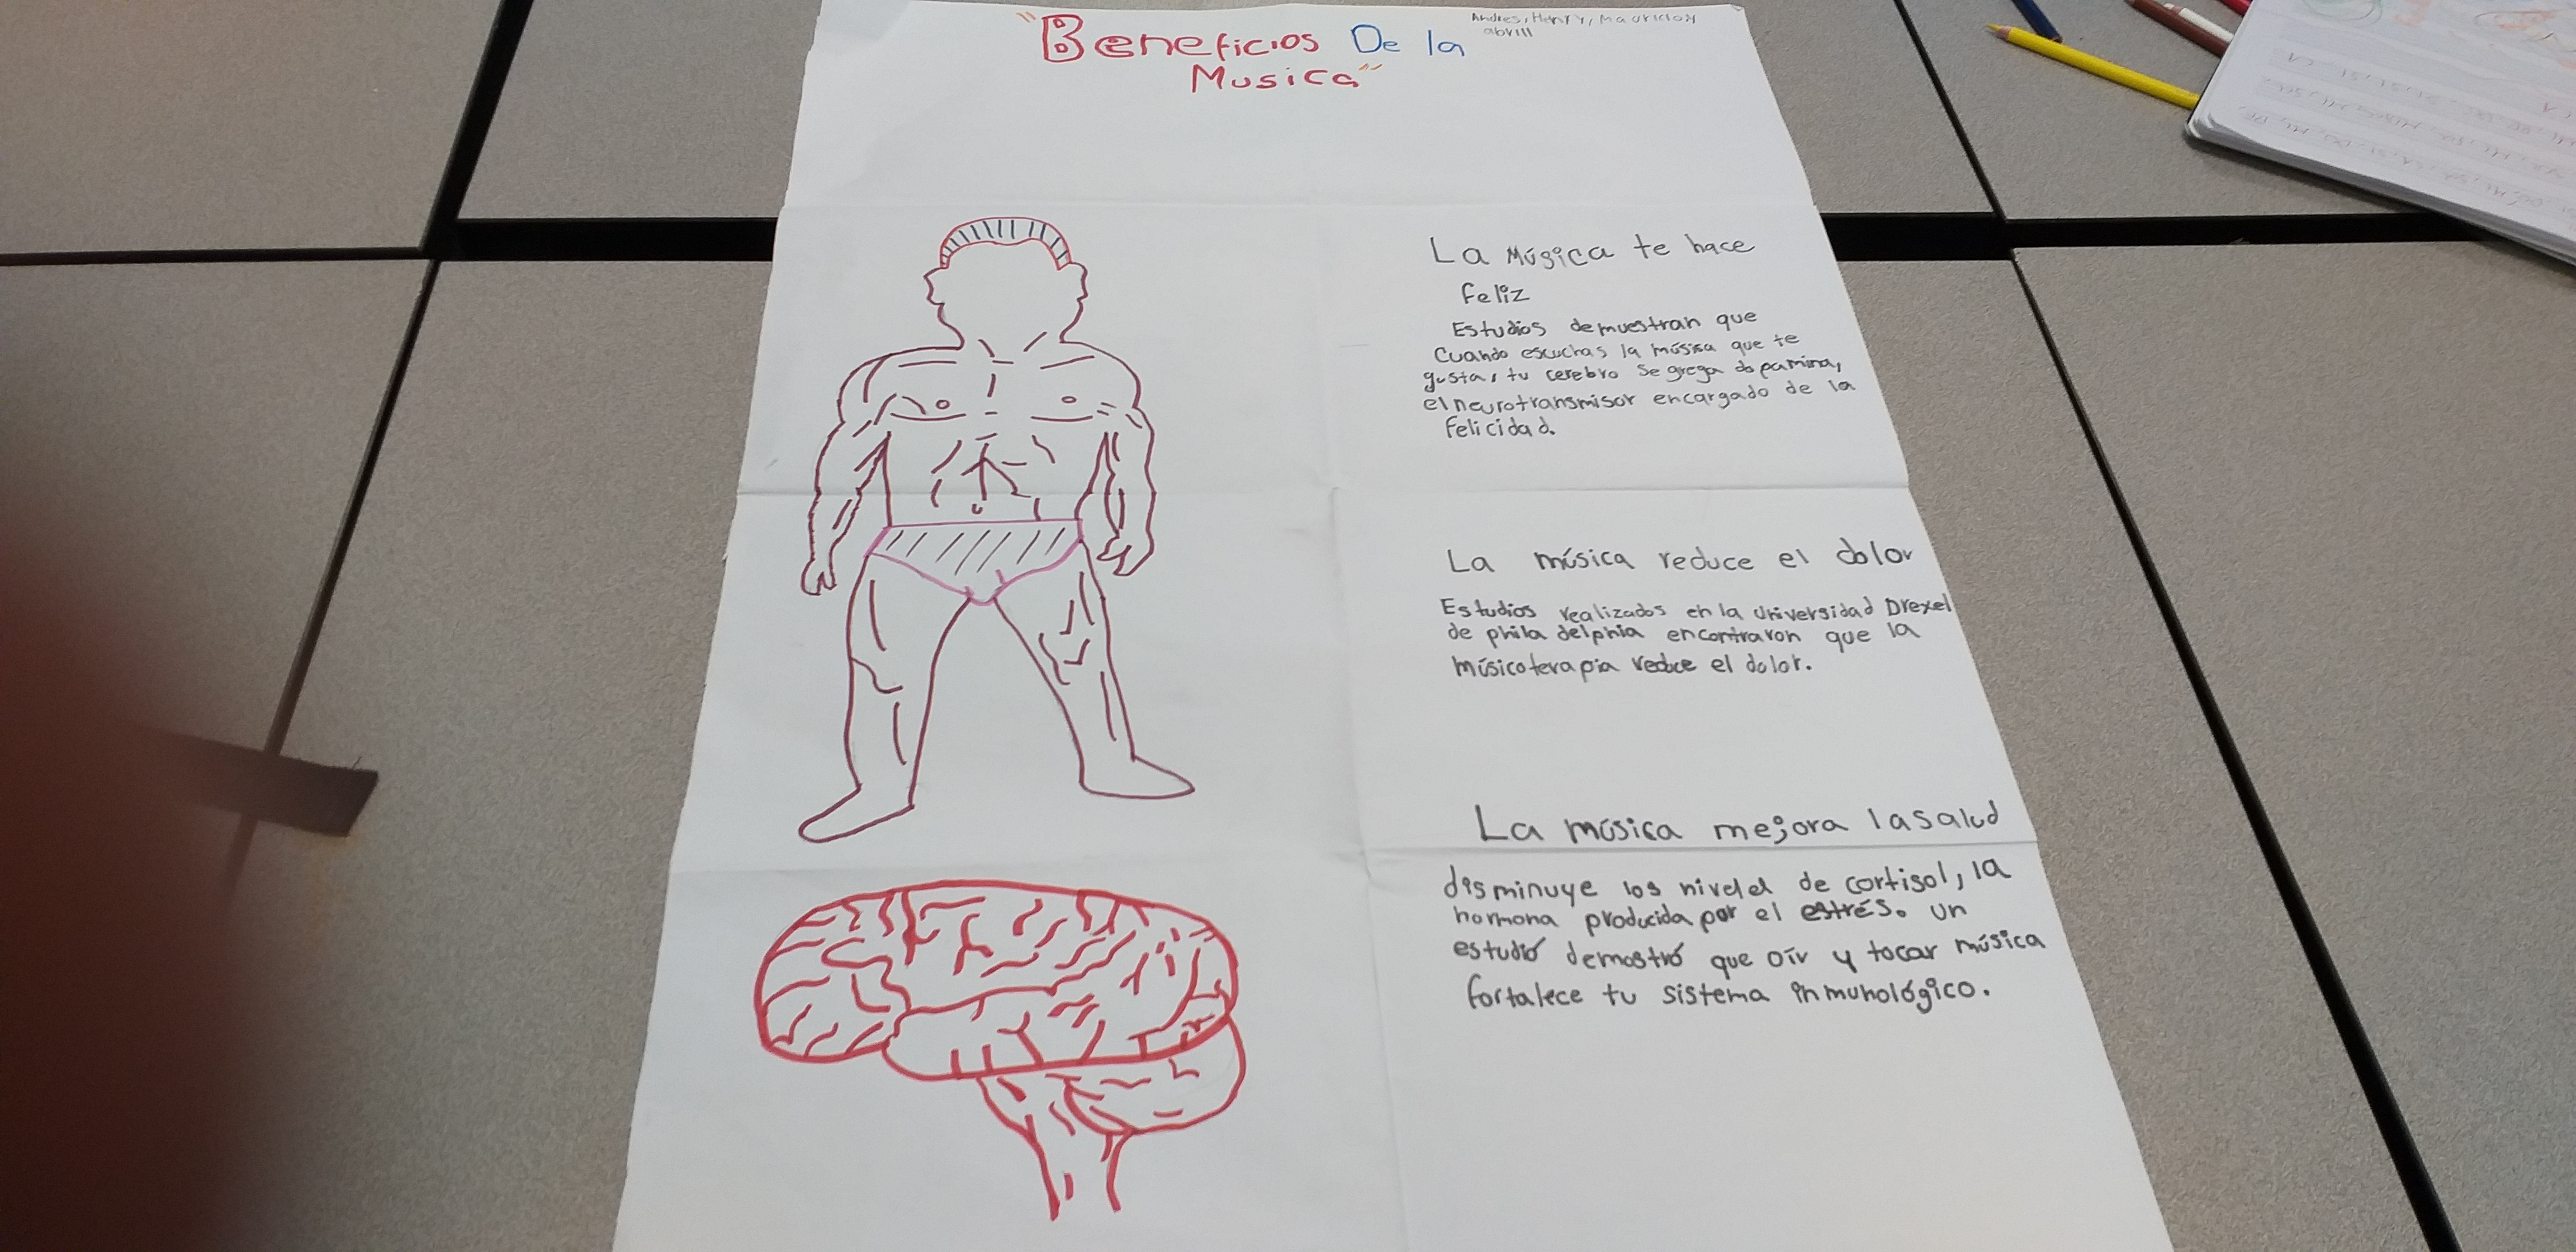 "Beneficios De la
Musica"
Andres, Henry, Mauricio y
abrill
La Música te hace
feliz
Estudios demuestran que
Cuando escuchas la música que te
gusta, tu cerebro segrega dopamina,
el neurotransmisor encargado de la
felicidad.
La música reduce el dolor
Estudios realizados en la Universidad Drexel
de philadelphia encontraron que la
músicoterapia reduce el dolor.
La música mejora la salud
disminuye los nivelel de cortisol, la
hormona producida por el estrés. un
estudió demostró que oír y tocar música
fortalece tu sistema inmunológico.